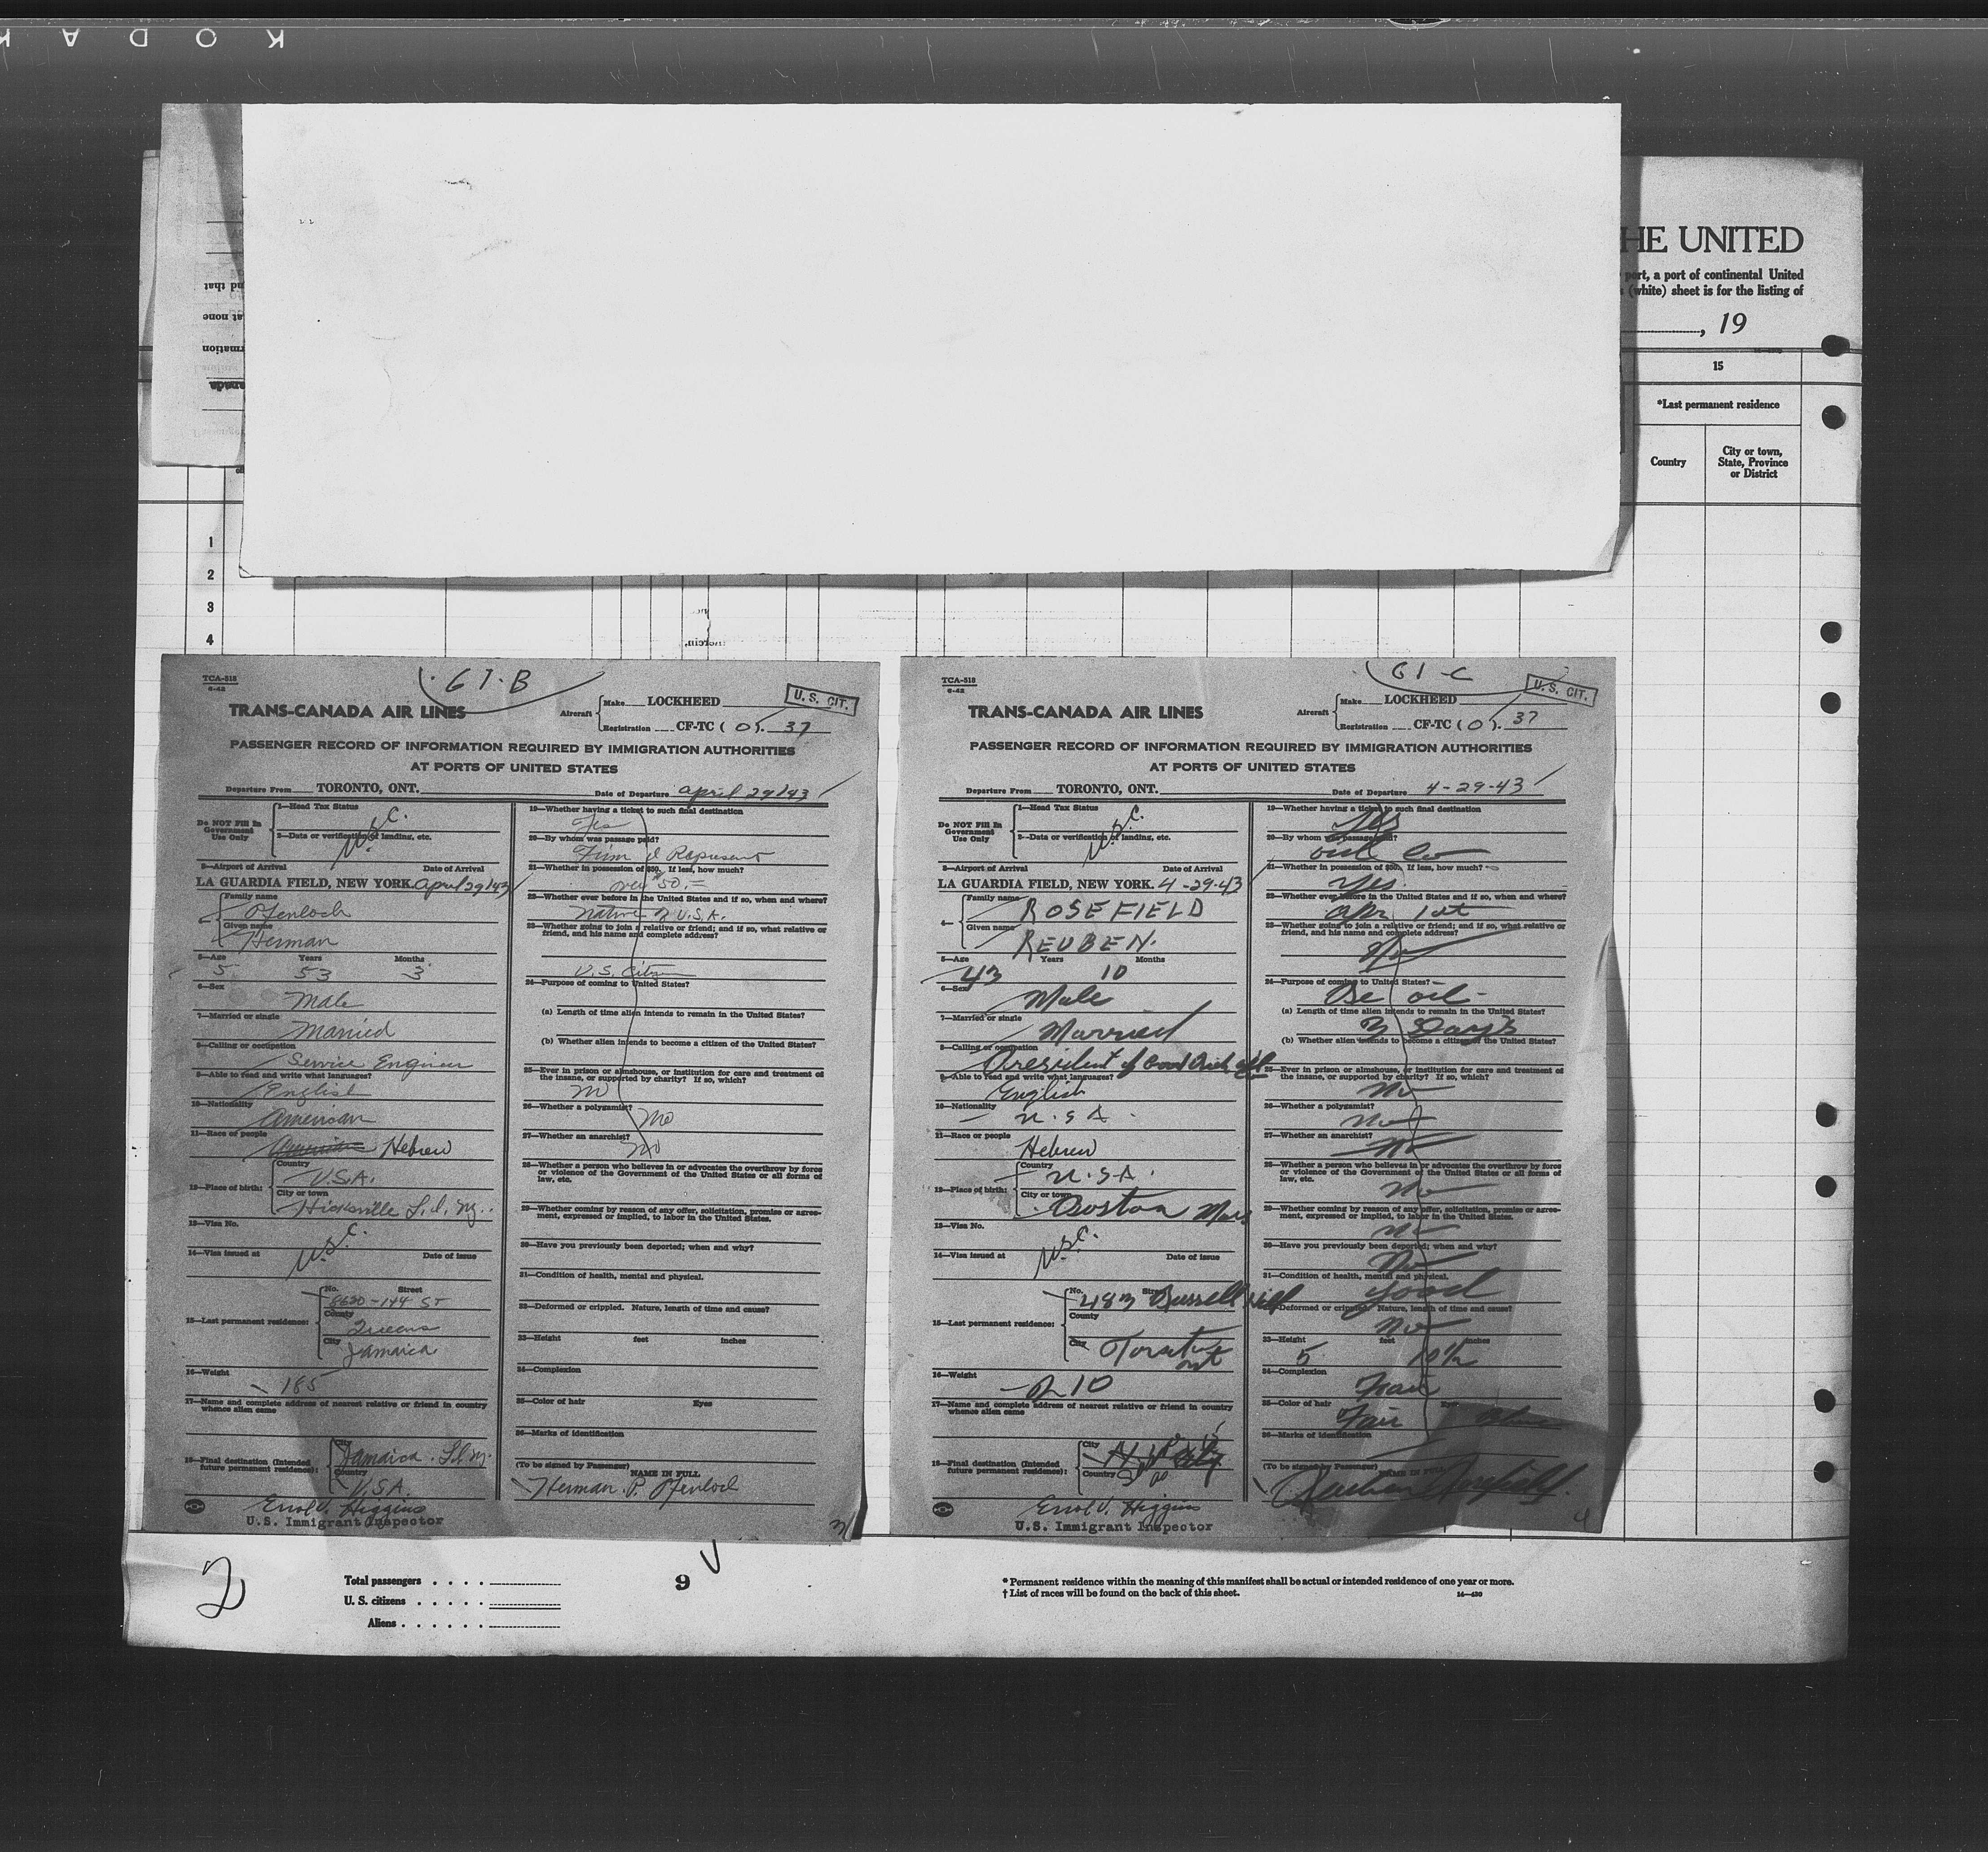 KODAK
HE UNITED
port, a port of continental United
(white) sheet is for the listing of
, 19
15
*Last permanent residence
Country
City or town,
State, Province
or District
1
2
3
4
TCA-518
6-42
61-B
U. S. CIT.
TRANS-CANADA AIR LINES
Aircraft
Make LOCKHEED
Registration CF-TC ( O ). 37
PASSENGER RECORD OF INFORMATION REQUIRED BY IMMIGRATION AUTHORITIES
AT PORTS OF UNITED STATES
Departure From TORONTO, ONT. Date of Departure April 29/43
Do NOT Fill In
Government
Use Only
1—Head Tax Status
2—Data or verification of landing, etc.
U.S.C.
3—Airport of Arrival Date of Arrival
LA GUARDIA FIELD, NEW YORK. April 29/43
4—
Family name
Pfenloch
Given name
Herman
5—Age Years Months
5 53 3
6—Sex
Male
7—Married or single
Married
8—Calling or occupation
Service Engineer
9—Able to read and write what languages?
English
10—Nationality
American
11—Race or people
American Hebrew
12—Place of birth:
Country
U.S.A.
City or town
Hicksville L.I. N.Y.
13—Visa No.
U.S.C.
14—Visa issued at Date of issue
15—Last permanent residence:
No. Street
8620-144 ST
County
Queens
City
Jamaica
16—Weight
185
17—Name and complete address of nearest relative or friend in country
whence alien came
18—Final destination (Intended
future permanent residence):
City
Jamaica. L.I. N.Y.
Country
U.S.A.
Errol V. Higgins
U.S. Immigrant Inspector
19—Whether having a ticket to such final destination
Yes
20—By whom was passage paid?
Firm I Represent
21—Whether in possession of $50. If less, how much?
over $50.—
22—Whether ever before in the United States and if so, when and where?
Native of U.S.A.
23—Whether going to join a relative or friend; and if so, what relative or
friend, and his name and complete address?
U.S. Citizen
24—Purpose of coming to United States?
(a) Length of time alien intends to remain in the United States?
(b) Whether alien intends to become a citizen of the United States?
25—Ever in prison or almshouse, or institution for care and treatment of
the insane, or supported by charity? If so, which?
No
26—Whether a polygamist?
No
27—Whether an anarchist?
No
28—Whether a person who believes in or advocates the overthrow by force
or violence of the Government of the United States or all forms of
law, etc.
29—Whether coming by reason of any offer, solicitation, promise or agree-
ment, expressed or implied, to labor in the United States.
30—Have you previously been deported; when and why?
31—Condition of health, mental and physical.
32—Deformed or crippled. Nature, length of time and cause?
33—Height feet inches
34—Complexion
35—Color of hair Eyes
36—Marks of identification
(To be signed by Passenger)
NAME IN FULL
Herman P. Pfenloch
3
TCA-518
6-42
61-C
U. S. CIT.
TRANS-CANADA AIR LINES
Aircraft
Make LOCKHEED
Registration CF-TC ( O ). 37
PASSENGER RECORD OF INFORMATION REQUIRED BY IMMIGRATION AUTHORITIES
AT PORTS OF UNITED STATES
Departure From TORONTO, ONT. Date of Departure 4-29-43
Do NOT Fill In
Government
Use Only
1—Head Tax Status
2—Data or verification of landing, etc.
U.S.C.
3—Airport of Arrival Date of Arrival
LA GUARDIA FIELD, NEW YORK. 4-29-43
4—
Family name
ROSEFIELD
Given name
REUBEN.
5—Age Years Months
43 10
6—Sex
Male
7—Married or single
Married
8—Calling or occupation
President of Good Rich Oil
9—Able to read and write what languages?
English
10—Nationality
U.S.A.
11—Race or people
Hebrew
12—Place of birth:
Country
U.S.A.
City or town
Boston Mass
13—Visa No.
U.S.C.
14—Visa issued at Date of issue
15—Last permanent residence:
No. Street
483 Russell Hill
County
City
Toronto
Ont
16—Weight
210
17—Name and complete address of nearest relative or friend in country
whence alien came
18—Final destination (Intended
future permanent residence):
City
Country
Errol V. Higgins
U.S. Immigrant Inspector
19—Whether having a ticket to such final destination
Yes
20—By whom was passage paid?
Oil Co
21—Whether in possession of $50. If less, how much?
Yes.
22—Whether ever before in the United States and if so, when and where?
Apr 1st
23—Whether going to join a relative or friend; and if so, what relative or
friend, and his name and complete address?
No
24—Purpose of coming to United States?
Re oil-
(a) Length of time alien intends to remain in the United States?
3 Days
(b) Whether alien intends to become a citizen of the United States?
25—Ever in prison or almshouse, or institution for care and treatment of
the insane, or supported by charity? If so, which?
No
26—Whether a polygamist?
No
27—Whether an anarchist?
No
28—Whether a person who believes in or advocates the overthrow by force
or violence of the Government of the United States or all forms of
law, etc.
No
29—Whether coming by reason of any offer, solicitation, promise or agree-
ment, expressed or implied, to labor in the United States.
No
30—Have you previously been deported; when and why?
No
31—Condition of health, mental and physical.
Good
32—Deformed or crippled. Nature, length of time and cause?
No
33—Height feet inches
5 10 1/2
34—Complexion
Fair
35—Color of hair Eyes
Fair Blue
36—Marks of identification
(To be signed by Passenger)
NAME IN FULL
Reuben Rosefield.
4
2
Total passengers
U. S. citizens
Aliens
9
* Permanent residence within the meaning of this manifest shall be actual or intended residence of one year or more.
† List of races will be found on the back of this sheet.
14—430